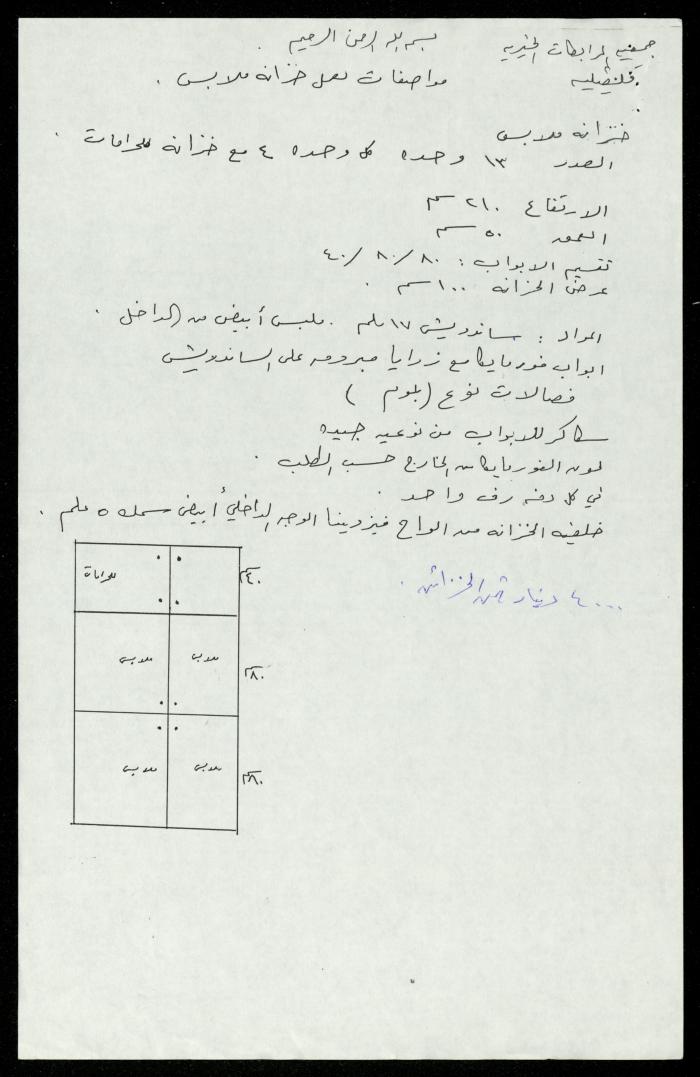 بسم الله الرحمن الرحيم
جمعية المرابطات الخيرية
قلقيليه
مواصفات لعمل خزانة ملابس .
خزانه ملابس
العدد ١٣ وحده كل وحده ٤ مع خزانه للحرامات .
الارتفاع ٢١٠ سم
العمق ٥٠ سم
تقسيم الابواب : ٨٠ / ٨٠ / ٤٠
عرض الخزانه ١٠٠ سم .
المواد : ساندويش ١٧ ملم . ملبس أبيض من الداخل .
ابواب فورمايكا مع زوايا مبرومه على الساندويش
فصالات نوع ( بلوم )
سكاكر للابواب من نوعيه جيده
لون الفورمايكا من الخارج حسب الطلب .
في كل دفه رف واحد .
خلفيه الخزانه من الواح فيزونيت الوجه الداخلي أبيض سمك ٥ ملم .
٤٠٠٠ دينار ثمن الخزائن .
حرامات
٤٠ سم
ملابس
ملابس
٨٠ سم
ملابس
ملابس
٨٠ سم